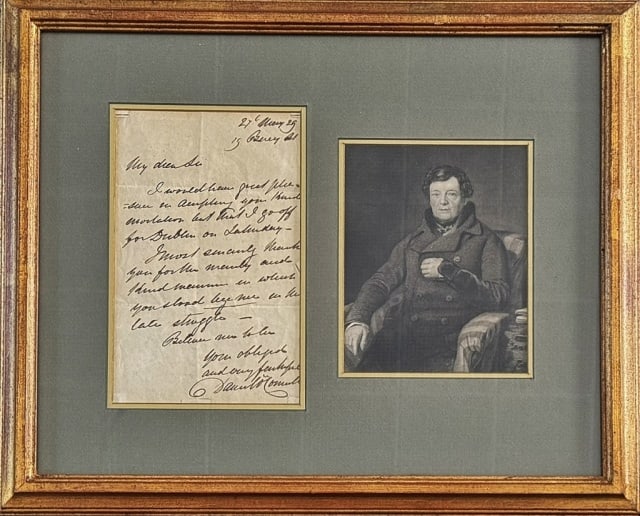 27 May 29
19 Bury St
My dear Sir
I would have great plea-
-sure in accepting your kind
invitation but that I go off
for Dublin on Saturday -
I most sincerely thank
you for the manly and
kind manner in which
you stood by me in the
late struggle -
Believe me to be
your obliged
and very faithful
Daniel O'Connell